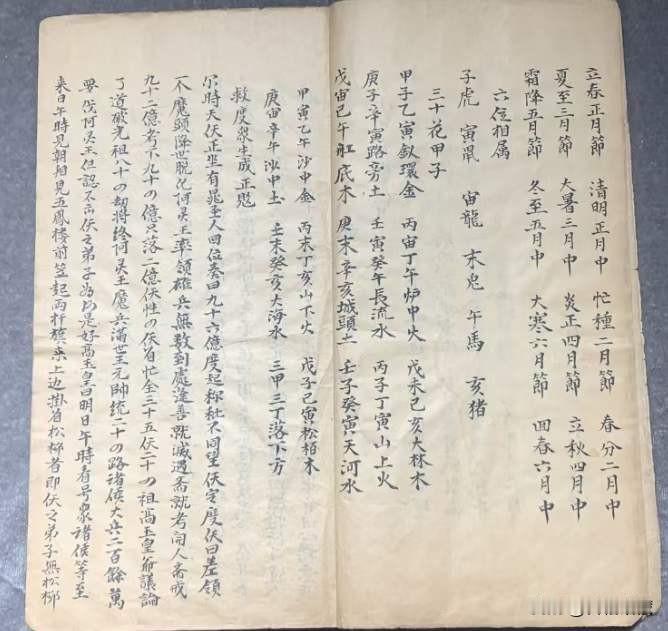 立春正月節　清明正月中　忙種二月節　春分二月中
夏至三月節　大暑三月中　炎正四月節　立秋四月中
霜降五月節　冬至五月中　大寒六月節　回春六月中
六位相属
子虎　寅鼠　宙龍　未兎　午馬　亥猪
三十花甲子
甲子乙寅釵環金　丙宙丁午炉中火　戊未己亥大林木
庚子辛寅路旁土　壬寅癸午長流水　丙子丁寅山上火
戊宙己午舡底木　庚未辛亥城頭土　壬子癸寅天河水
甲寅乙午沙中金　丙未丁亥山下火　戊子己寅松栢木
庚宙辛午沙中土　壬未癸亥大海水　三甲三丁落下方
救度衆生成正
尔時天伏正坐有晁圣人四位奏曰九十六億度起称祉不同望伏定度伏曰差領
一不魔頭降世脱化何吴王率領雄兵無数到處逢善就滅遇斋就考问人斋戒
九十二億者下九十の億只落二億伏性の伏有忙全三十五伏二十の祖高玉皇爺議論
了道破光祖八十の劫將终何吴王魔兵滿世王元帥统二十の路诸侯大兵二百餘萬
要伐何吴王但認不伏之弟子為是好高玉皇曰明日午時看号衆诸侯等至
来日午時見朝相見五鳳楼前竺起兩杆旗来上边掛着松柳者即伏之弟子無松柳